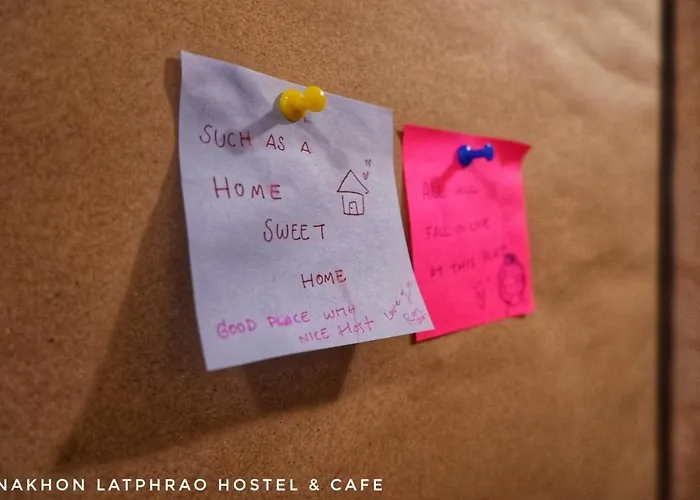 SUCH AS A
HOME
SWEET
HOME
GOOD PLACE WITH
NICE HOST
Love ya
ALL
FALL IN LOVE
AT THIS PLACE
NAKHON LATPHRAO HOSTEL & CAFE